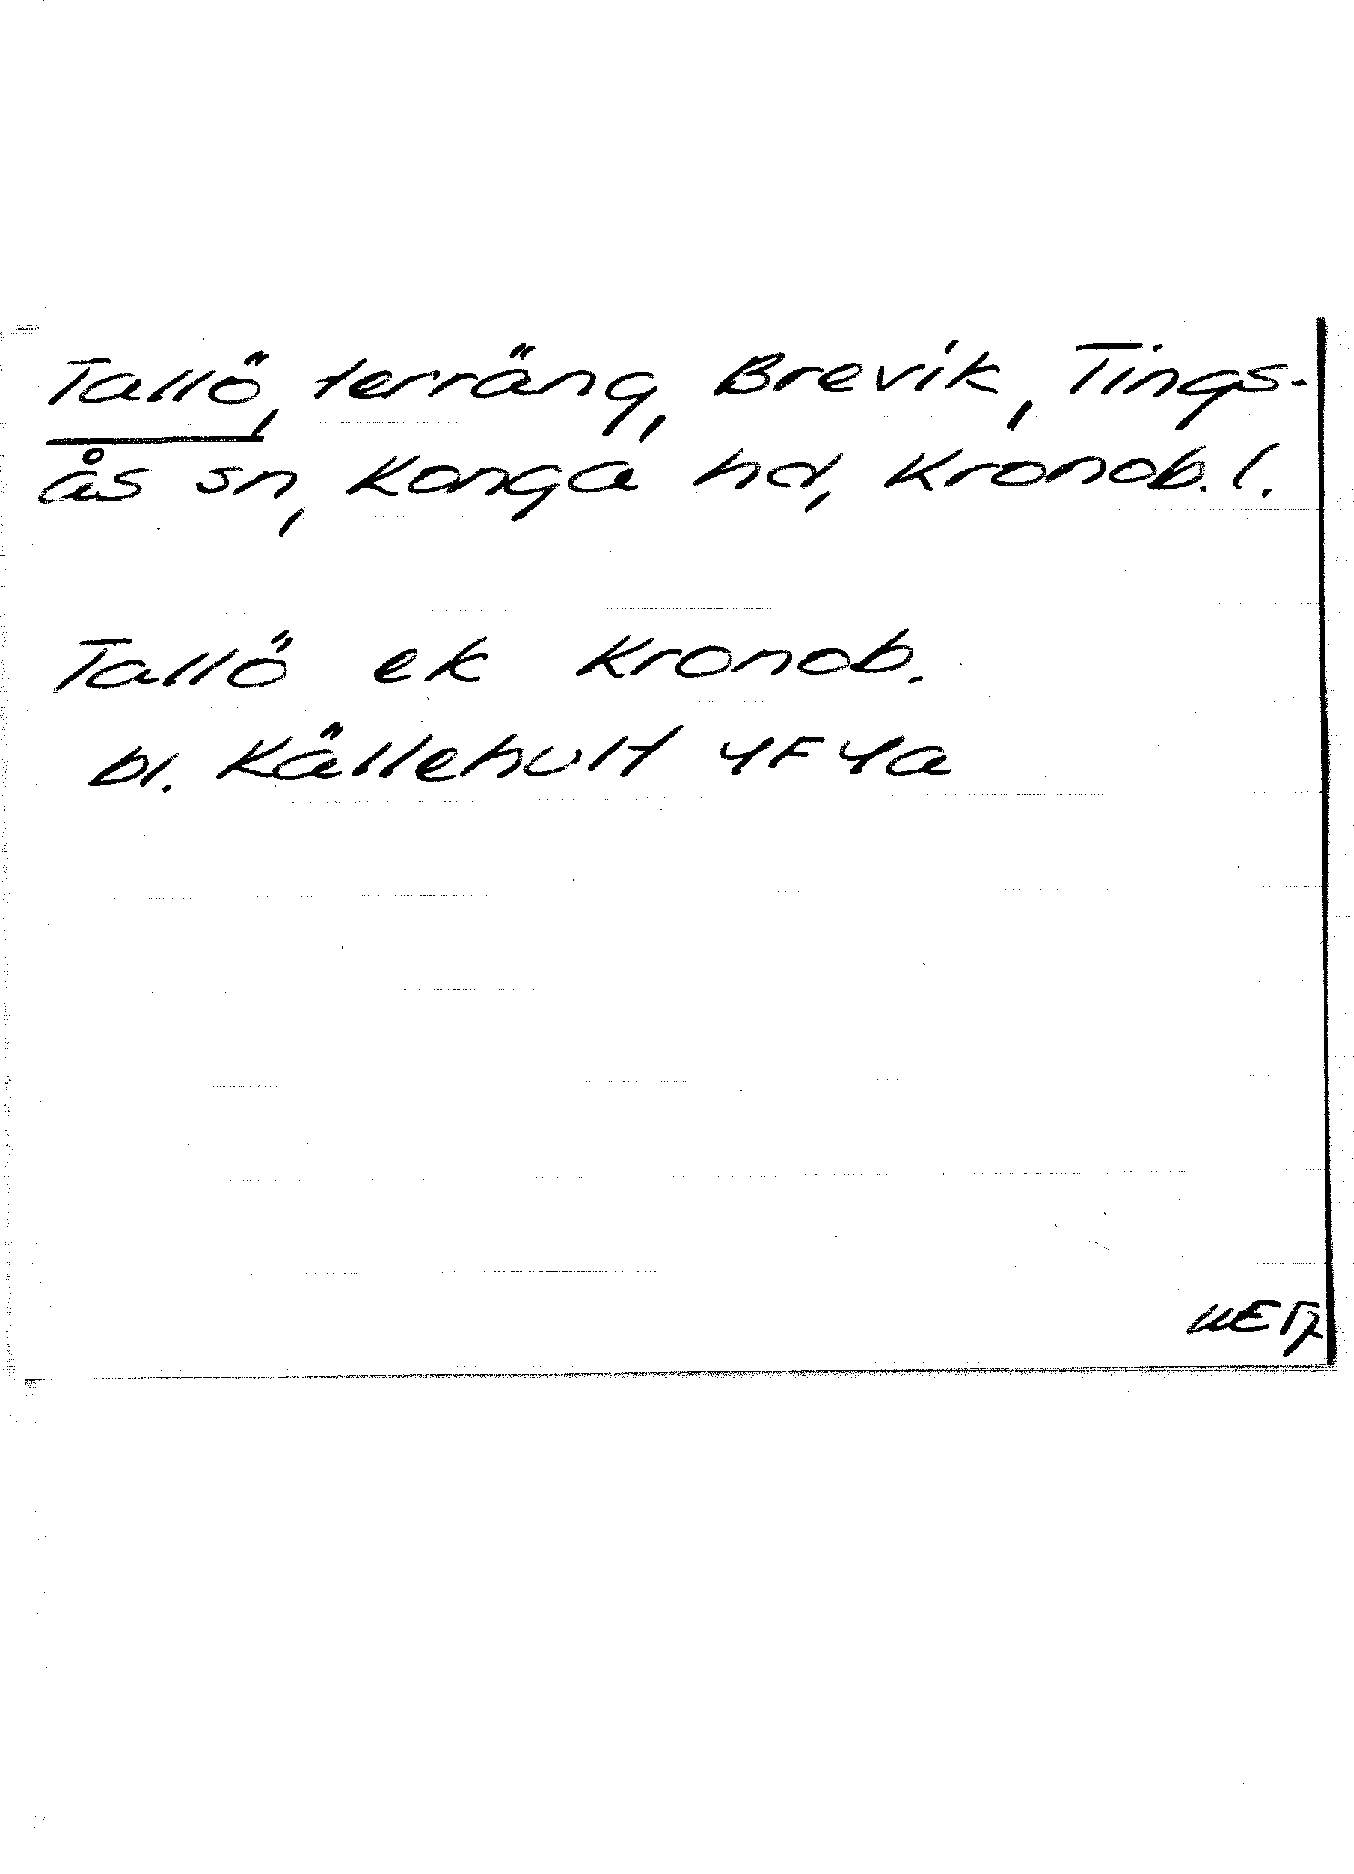 Tallö, terräng, Brevik, Tings-
ås sn, Konga hd, Kronob. l.
Tallö ek Kronob.
bl. Källehult 4F4a